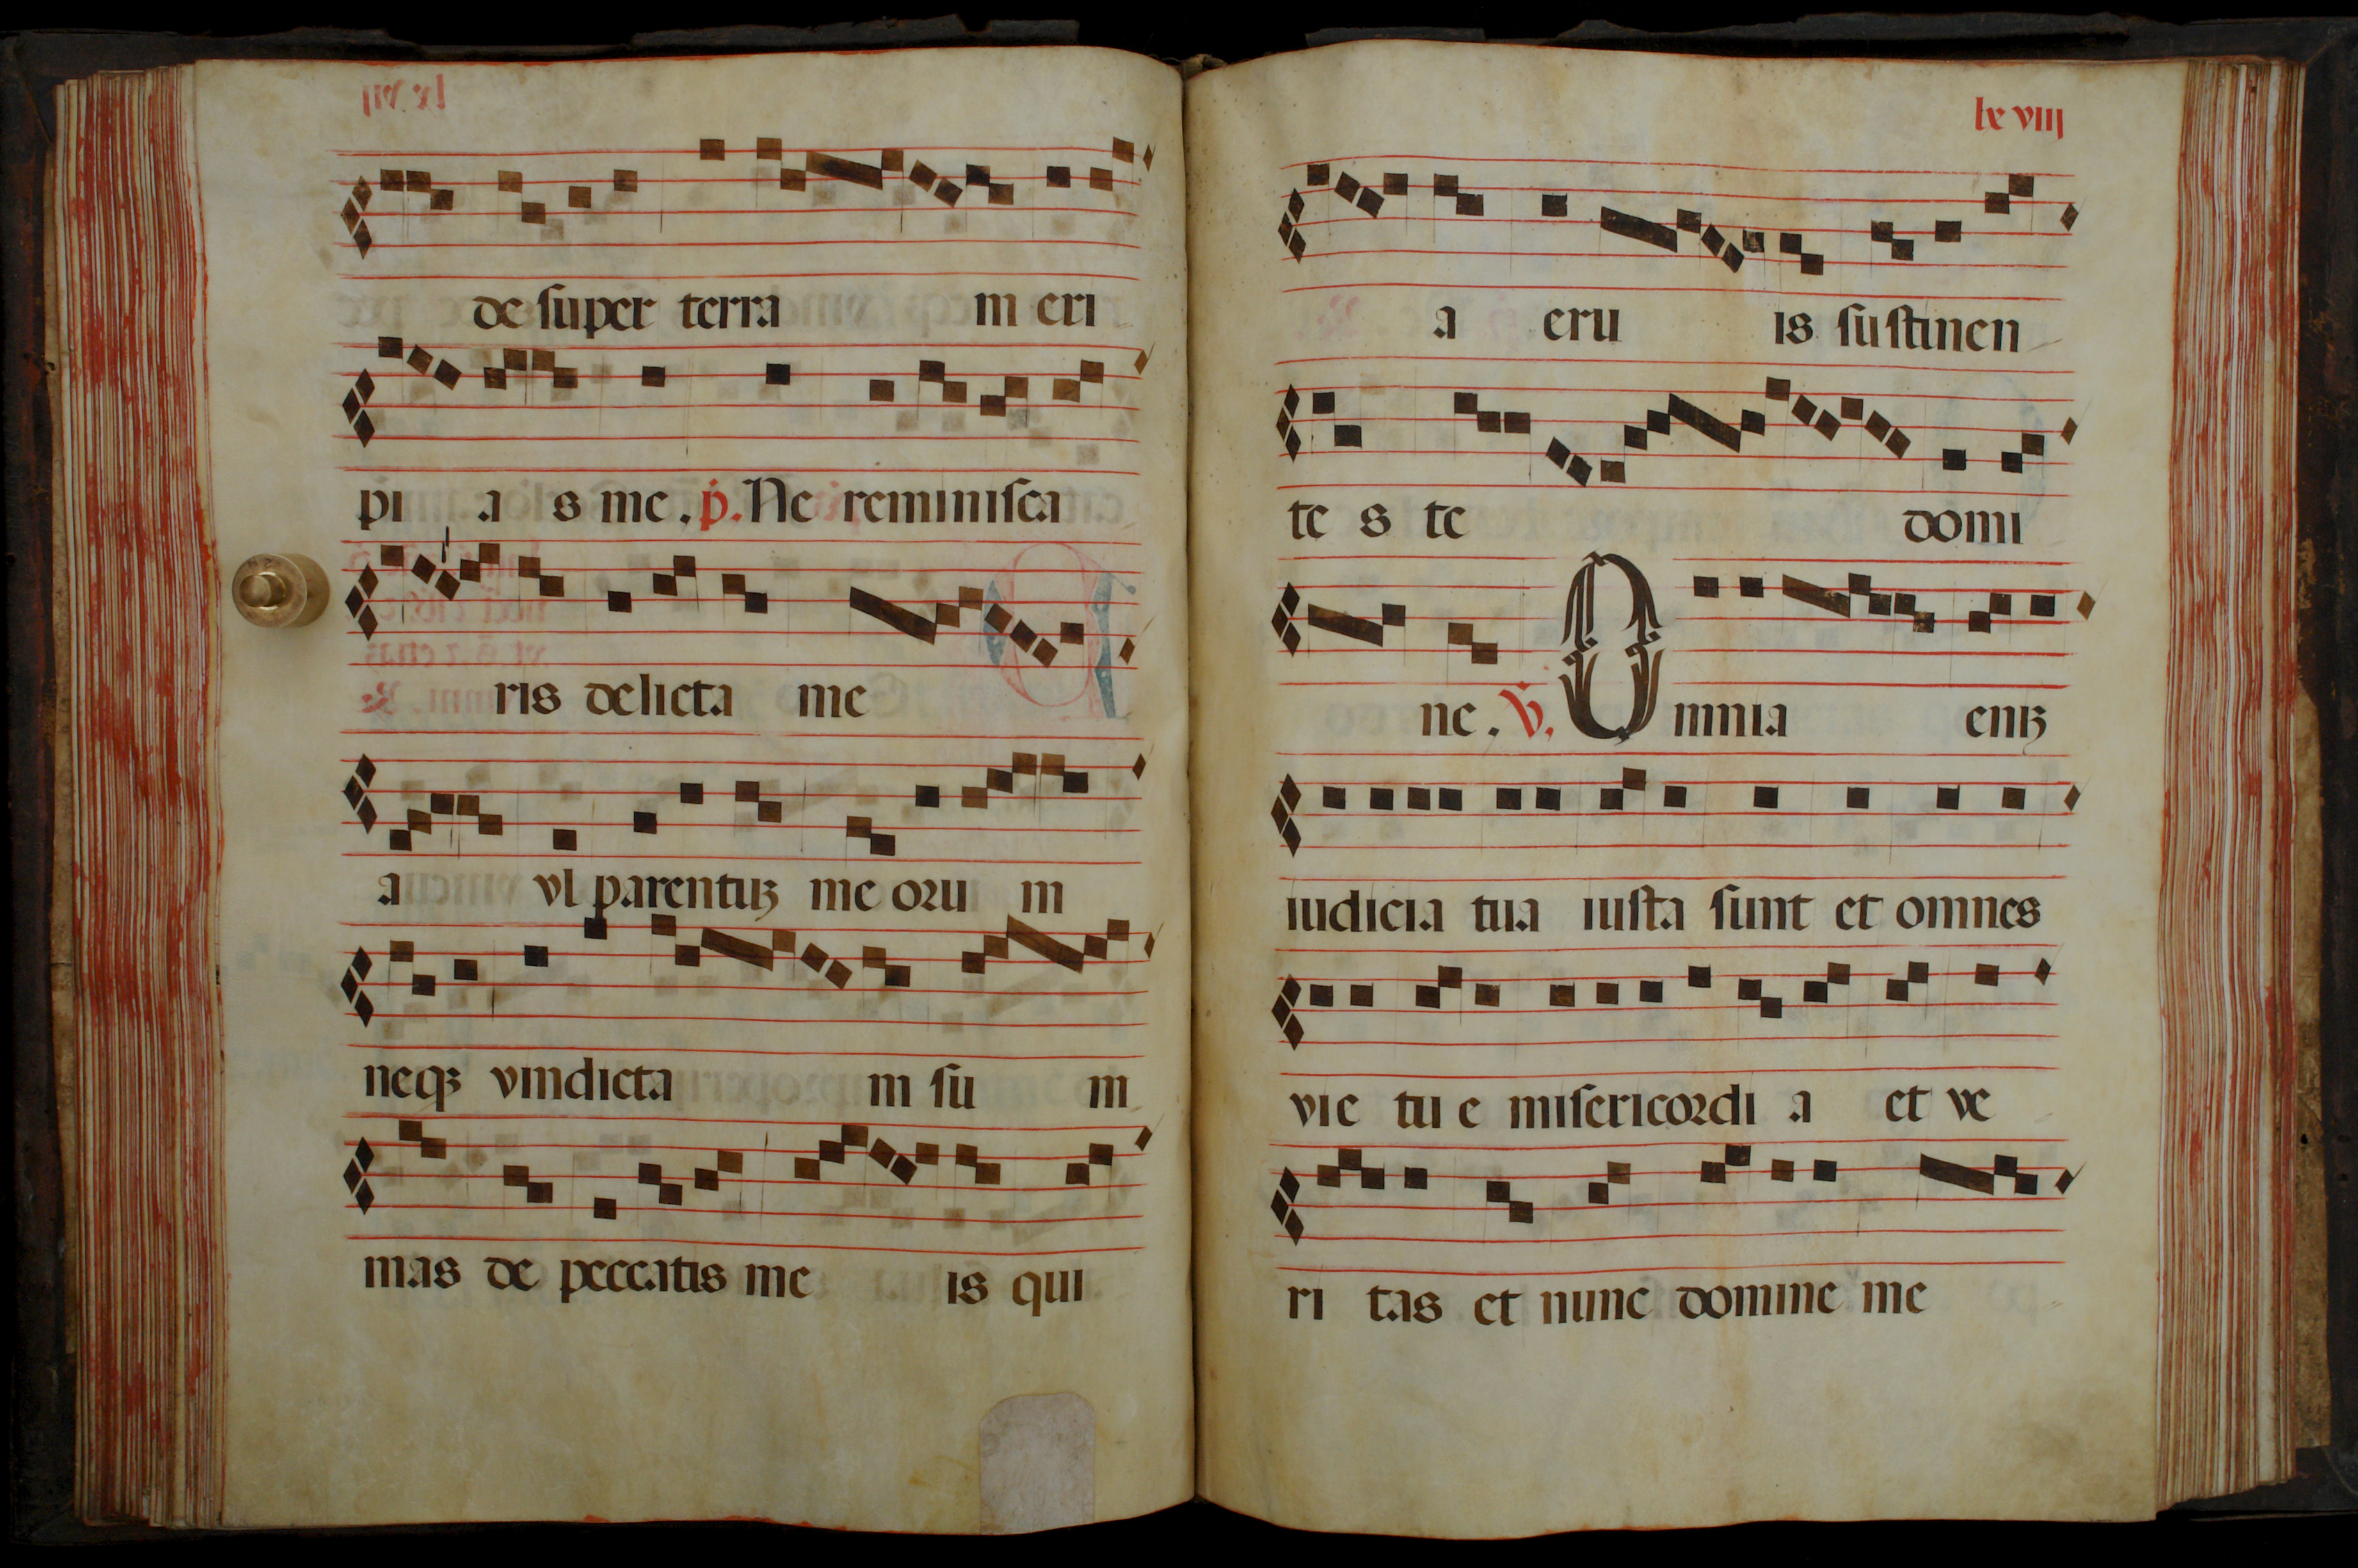 de super terra m eri
pi a s me . p. Ne reminisca
ris delicta me
a vl parentuʒ me oru m
neqʒ vindicta m su m
mas de peccatis me is qui
lx viij
a eru is sustinen
te s te domi
ne . V. Omnia eniʒ
iudicia tua iusta sunt et omnes
vie tu e misericordi a et ve
ri tas et nunc domine me